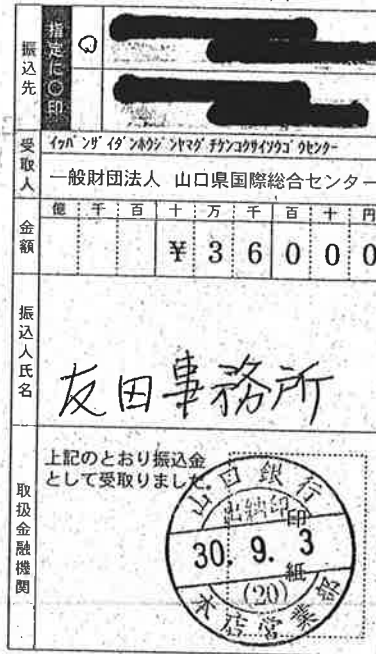 振込先
指定に○印
受取人
イッパンザイダンホウジンヤマグチケンコクサイソウゴウセンター
一般財団法人 山口県国際総合センター
億 千 百 十 万 千 百 十 円
金額
¥36000
振込人氏名
友田事務所
取扱金融機関
上記のとおり振込金
として受取りました。
山口銀行
出納印
印
30. 9. 3
紙
(20)
本店営業部